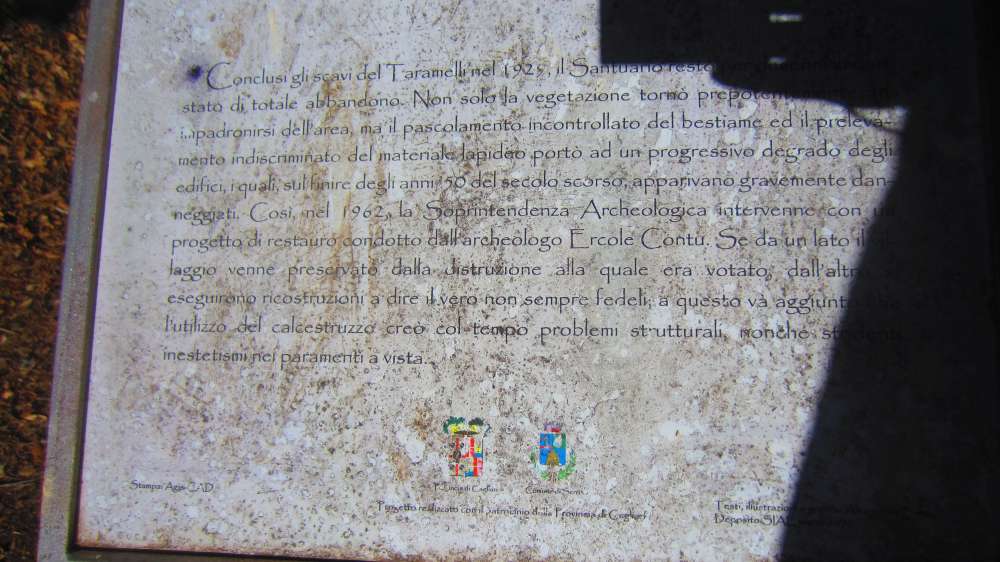 Conclusi gli scavi del Taramelli nel 1929, il Santuario restò
stato di totale abbandono. Non solo la vegetazione tornò prepotentemente ad
impadronirsi dell'area, ma il pascolamento incontrollato del bestiame ed il preleva-
mento indiscriminato del materiale lapideo portò ad un progressivo degrado degli
edifici, i quali, sul finire degli anni '50 del secolo scorso, apparivano gravemente dan-
neggiati. Così, nel 1962, la Soprintendenza Archeologica intervenne con un
progetto di restauro condotto dall'archeologo Ercole Contu. Se da un lato il vil-
laggio venne preservato dalla distruzione alla quale era votato, dall'altro
eseguirono ricostruzioni a dire il vero non sempre fedeli; a questo va aggiunto che
l'utilizzo del calcestruzzo creò col tempo problemi strutturali, nonché stridenti
inestetismi nei paramenti a vista.
Provincia di Cagliari Comune di Serri
Stampa: Agis CAD
Progetto realizzato con il patrocinio della Provincia di Cagliari
Testi, illustrazioni
Deposito SIAE